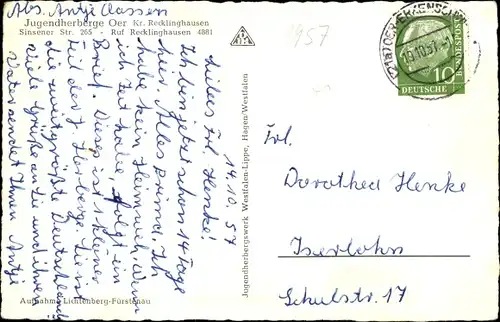 Abs. Antje Classen
Jugendherberge Oer Kr. Recklinghausen
Sinsener Str. 265 - Ruf Recklinghausen 4881
1957
14.10.57
Liebes Frl Henke!
Ich bin jetzt schon 14 Tage
hier. Alles prima. Ich
habe kein Heimweh. Wenn
ich Zeit habe, folgt ein
Brief. Dieses ist 1 kleiner
Teil der J. Herberge. Es ist
die zweitgrößte Deutschlands
Viele Grüße an Sie und ihren
Vater sendet Ihnen Antje
Aufnahme Lichtenberg-Fürstenau
Jugendherbergswerk Westfalen-Lippe, Hagen/Westfalen
15.10.57
DEUTSCHE
BUNDESPOST
10
Frl.
Dorothea Henke
Iserlohn
Schulstr. 17